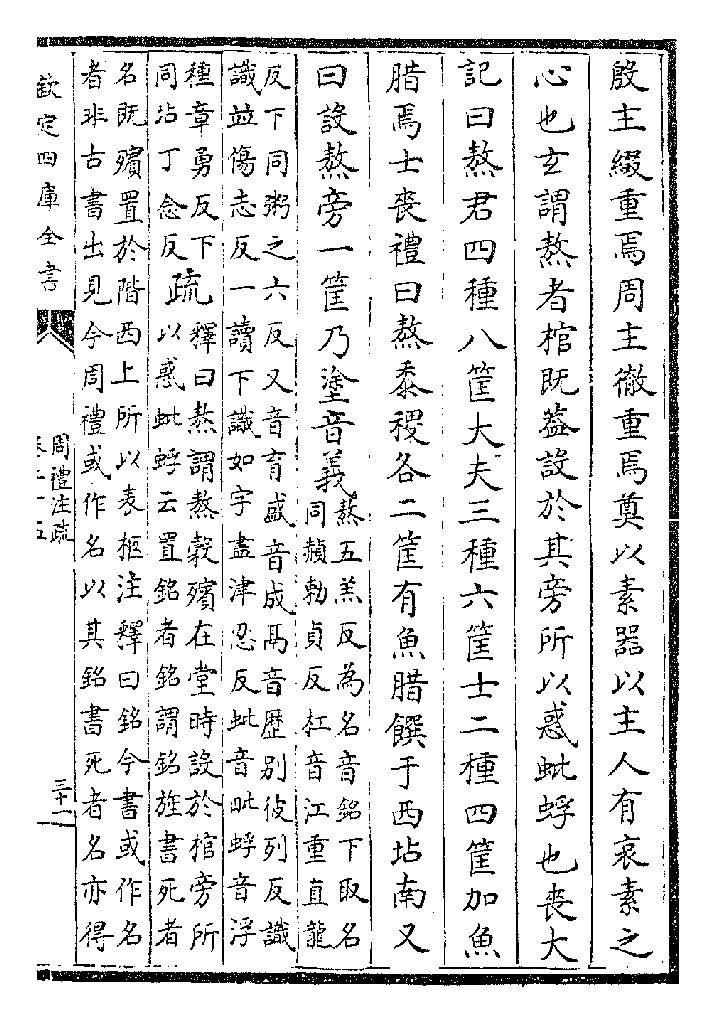 殷主綴重焉周主徹重焉奠以素器以主人有哀素之
心也玄謂熬者棺既蓋設於其旁所以惑蚍蜉也喪大
記曰熬君四種八筐大夫三種六筐士二種四筐加魚
腊焉士喪禮曰熬黍稷各二筐有魚腊饌于西坫南又
曰設熬旁一筐乃塗音義
熬五羔反為名音銘下取名
同赬勅貞反杠音江重直龍
反下同粥之六反又音育盛音成鬲音歷別彼列反識
識並傷志反一讀下識如字盡津忍反蚍音毗蜉音浮
種章勇反下
同坫丁念反
疏
釋曰熬謂熬榖殯在堂時設於棺旁所
以惑蚍蜉云置銘者銘謂銘旌書死者
名既殯置於階西上所以表柩注釋曰銘今書或作名
者非古書出見今周禮或作名以其銘書死者名亦得
欽定四庫全書
周禮注疏
卷二十五
三十一